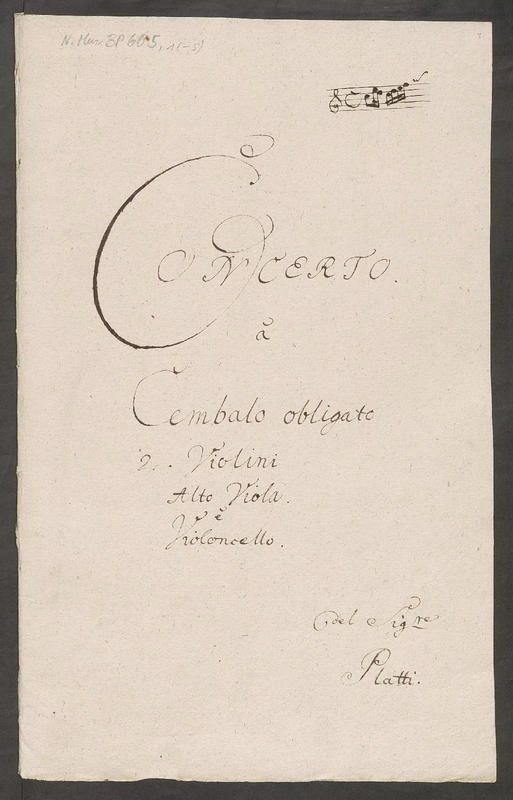 N. Mus. BP 605, 1(-5)
CONCERTO.
à
Cembalo obligato
2. Violini
Alto Viola.
è
Violoncello.
del Sigre
Platti.